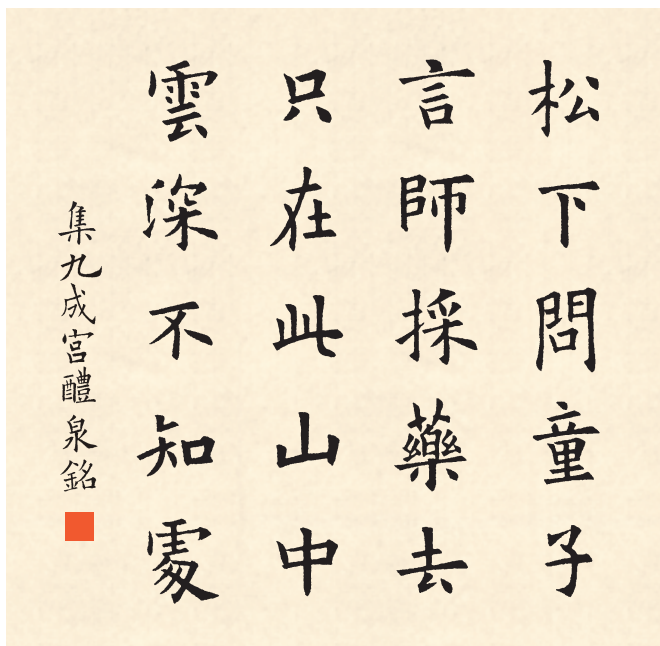 松下問童子
言師採藥去
只在此山中
雲深不知處
集九成宮醴泉銘